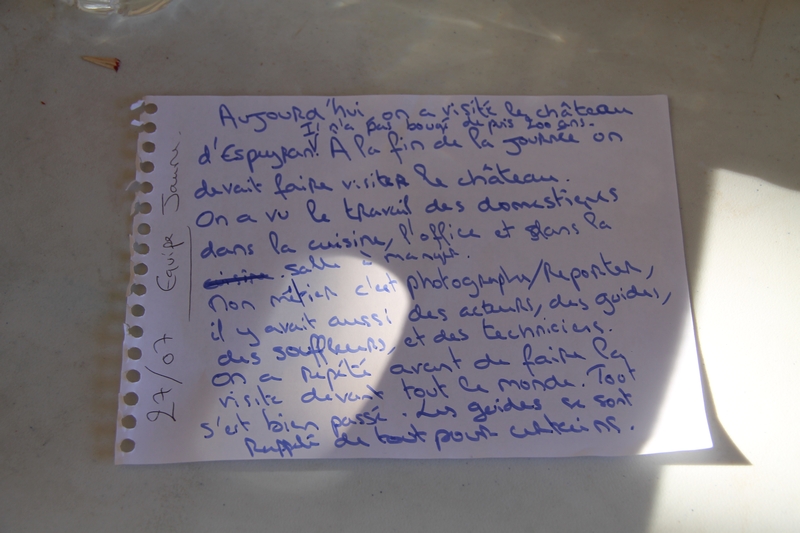 Aujourd'hui on a visité le château
Il n'a pas bougé depuis 200 ans.
d'Espeyran. A la fin de la journée on
devait faire visiter le château.
On a vu le travail des domestiques
dans la cuisine, l'office et dans la
salle à manger.
Mon métier c'est photographe/reporter,
il y avait aussi des acteurs, des guides,
des souffleurs, et des techniciens.
On a répété avant de faire la
visite devant tout le monde. Tout
s'est bien passé. Les guides se sont
rappelé de tout pour certains.
27/07 Equipe Jaune.